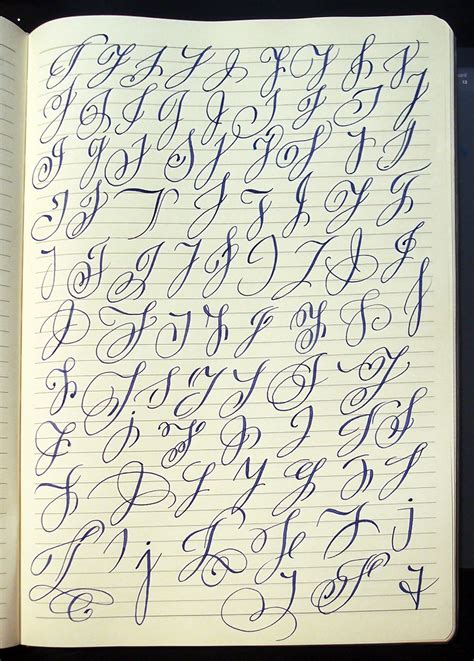 J J J J J J J J J
J J J J J J J J J J
J J J J J J J J J J
J J J J J J J J
J J J J J J J J J
J J J J J J J J
J J J J J J J
J J J J J J J
J J J J J J J
J J j J J J j
J J J